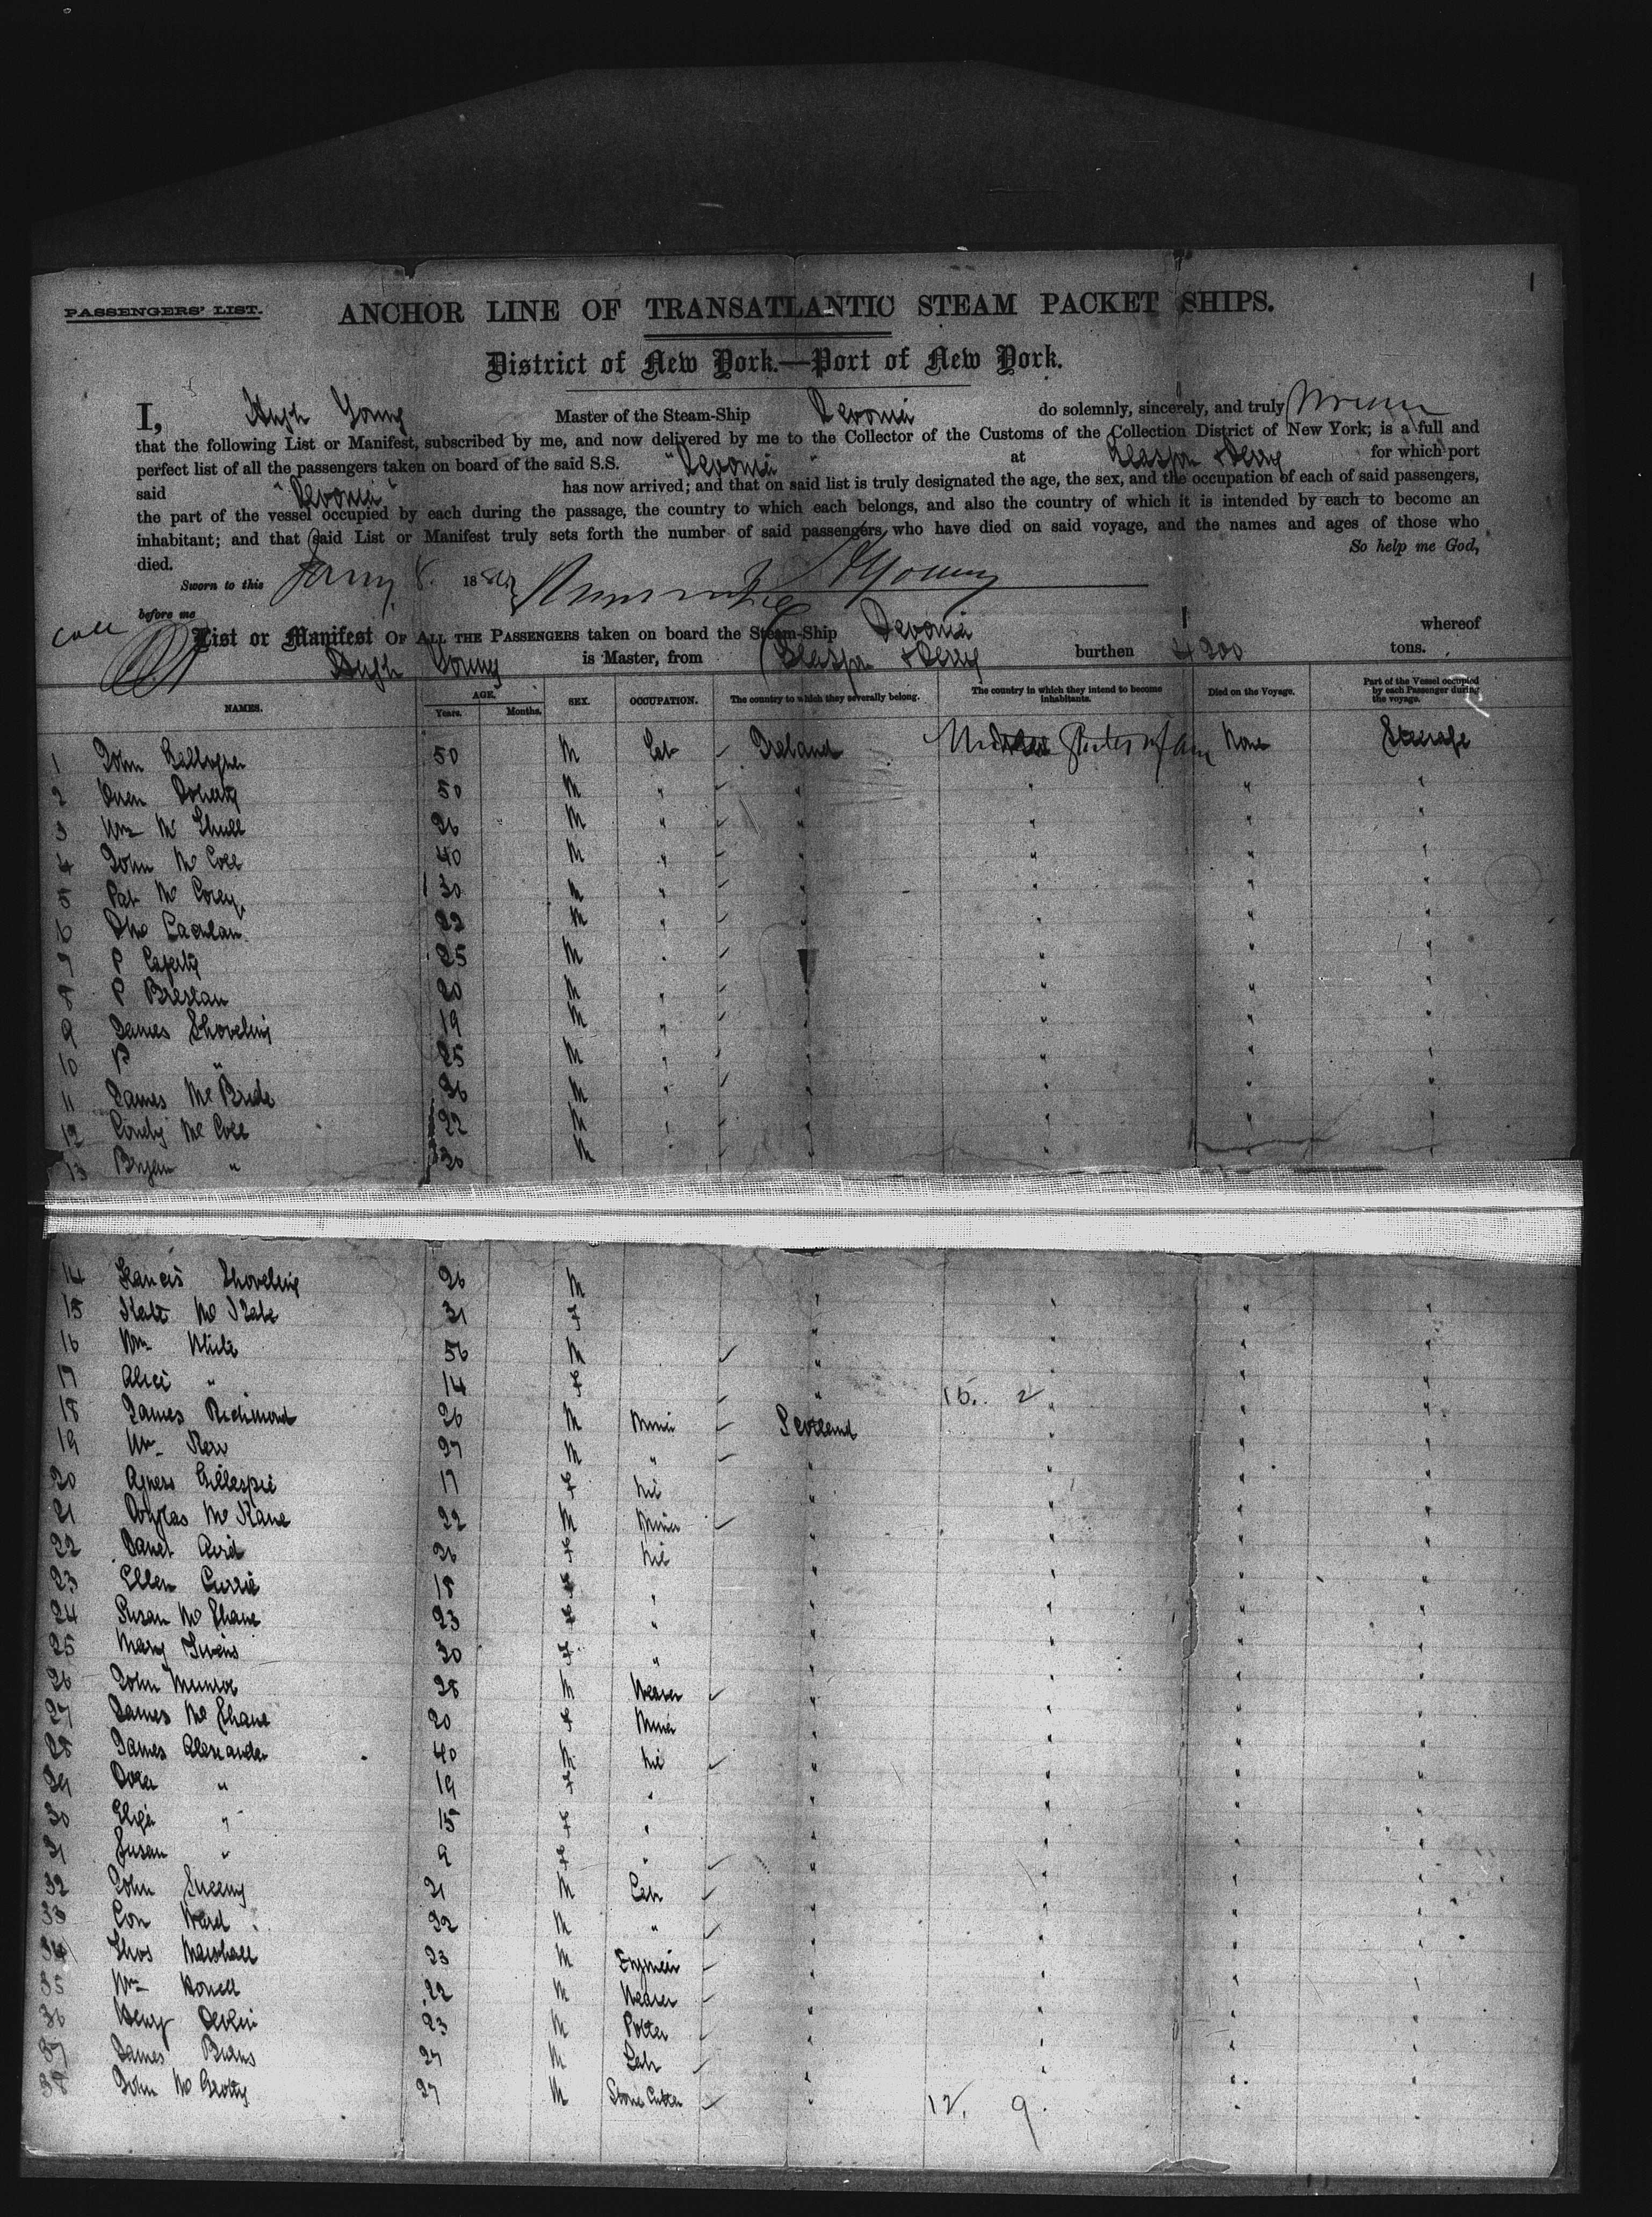 1
PASSENGERS' LIST.
ANCHOR LINE OF TRANSATLANTIC STEAM PACKET SHIPS.
District of New York.—Port of New York.
I, Hugh Young Master of the Steam-Ship Devonia do solemnly, sincerely, and truly
that the following List or Manifest, subscribed by me, and now delivered by me to the Collector of the Customs of the Collection District of New York; is a full and
perfect list of all the passengers taken on board of the said S.S. "Devonia" at Glasgow & Derry for which port
said "Devonia" has now arrived; and that on said list is truly designated the age, the sex, and the occupation of each of said passengers,
the part of the vessel occupied by each during the passage, the country to which each belongs, and also the country of which it is intended by each to become an
inhabitant; and that said List or Manifest truly sets forth the number of said passengers who have died on said voyage, and the names and ages of those who
died. So help me God,
Sworn to this Jany 8. 18 HYoung
before me
List or Manifest OF ALL THE PASSENGERS taken on board the Steam-Ship Devonia whereof
Hugh Young is Master, from Glasgow & Derry burthen 4200 tons.
NAMES. AGE. Years. Months. SEX. OCCUPATION. The country to which they severally belong. The country in which they intend to become inhabitants. Died on the Voyage. Part of the Vessel occupied by each Passenger during the voyage.
1 John Gallagher 50 M Lab Ireland United States of Am None Steerage
2 Owen Doherty 50 M " " " " "
3 Wm Mc 26 M " " " " "
4 John Mc Cole 40 M " " " " "
5 Pat Mc 30 M " " " " "
6 22 M " " " " "
7 P Caferty 25 M " " " " "
8 P Breslan 20 M " " " " "
9 James Shovelin 19 M " " " " "
10 P " 25 M " " " " "
11 James Mc Bride 26 M " " " " "
12 Condy Mc Cole 22 M " " " " "
13 Bryan " 30 M " " " " "
14 Francis Shovelin 26 M " " " "
15 Kate Mc 31 F " " " "
16 Wm White 56 M " " " "
17 Alice " 14 F " 15. 2 " " "
18 James Richmond 26 M Miner Scotland " " "
19 Wm 27 M " " " " "
20 Agness Gillespie 17 F Nil " " " "
21 Douglas Mc Kane 22 M Miner " " " "
22 Janet Aird 26 F Nil " " " "
23 Ellen Currie 18 F " " " " "
24 Susan Mc Shane 23 F " " " " "
25 Mary 30 F " " " " "
26 John Munroe 28 M Weaver " " " "
27 James Mc Shane 20 F Miner " " " "
28 James Alexander 40 M Nil " " " "
29 " 19 F " " " " "
30 Eliza " 15 F " " " " "
31 Susan " 9 F " " " " "
32 John Sweeny 21 M Lab " " " "
33 Con Ward 32 M " " " " "
34 Thos Marshall 23 M Engineer " " " "
35 Wm Howell 22 M Weaver " " " "
36 Henry Devlin 23 M Potter " " " "
37 James Burns 27 M Lab " " " "
38 John Mc Grotty 27 M Stone Cutter " 12. 9. " "